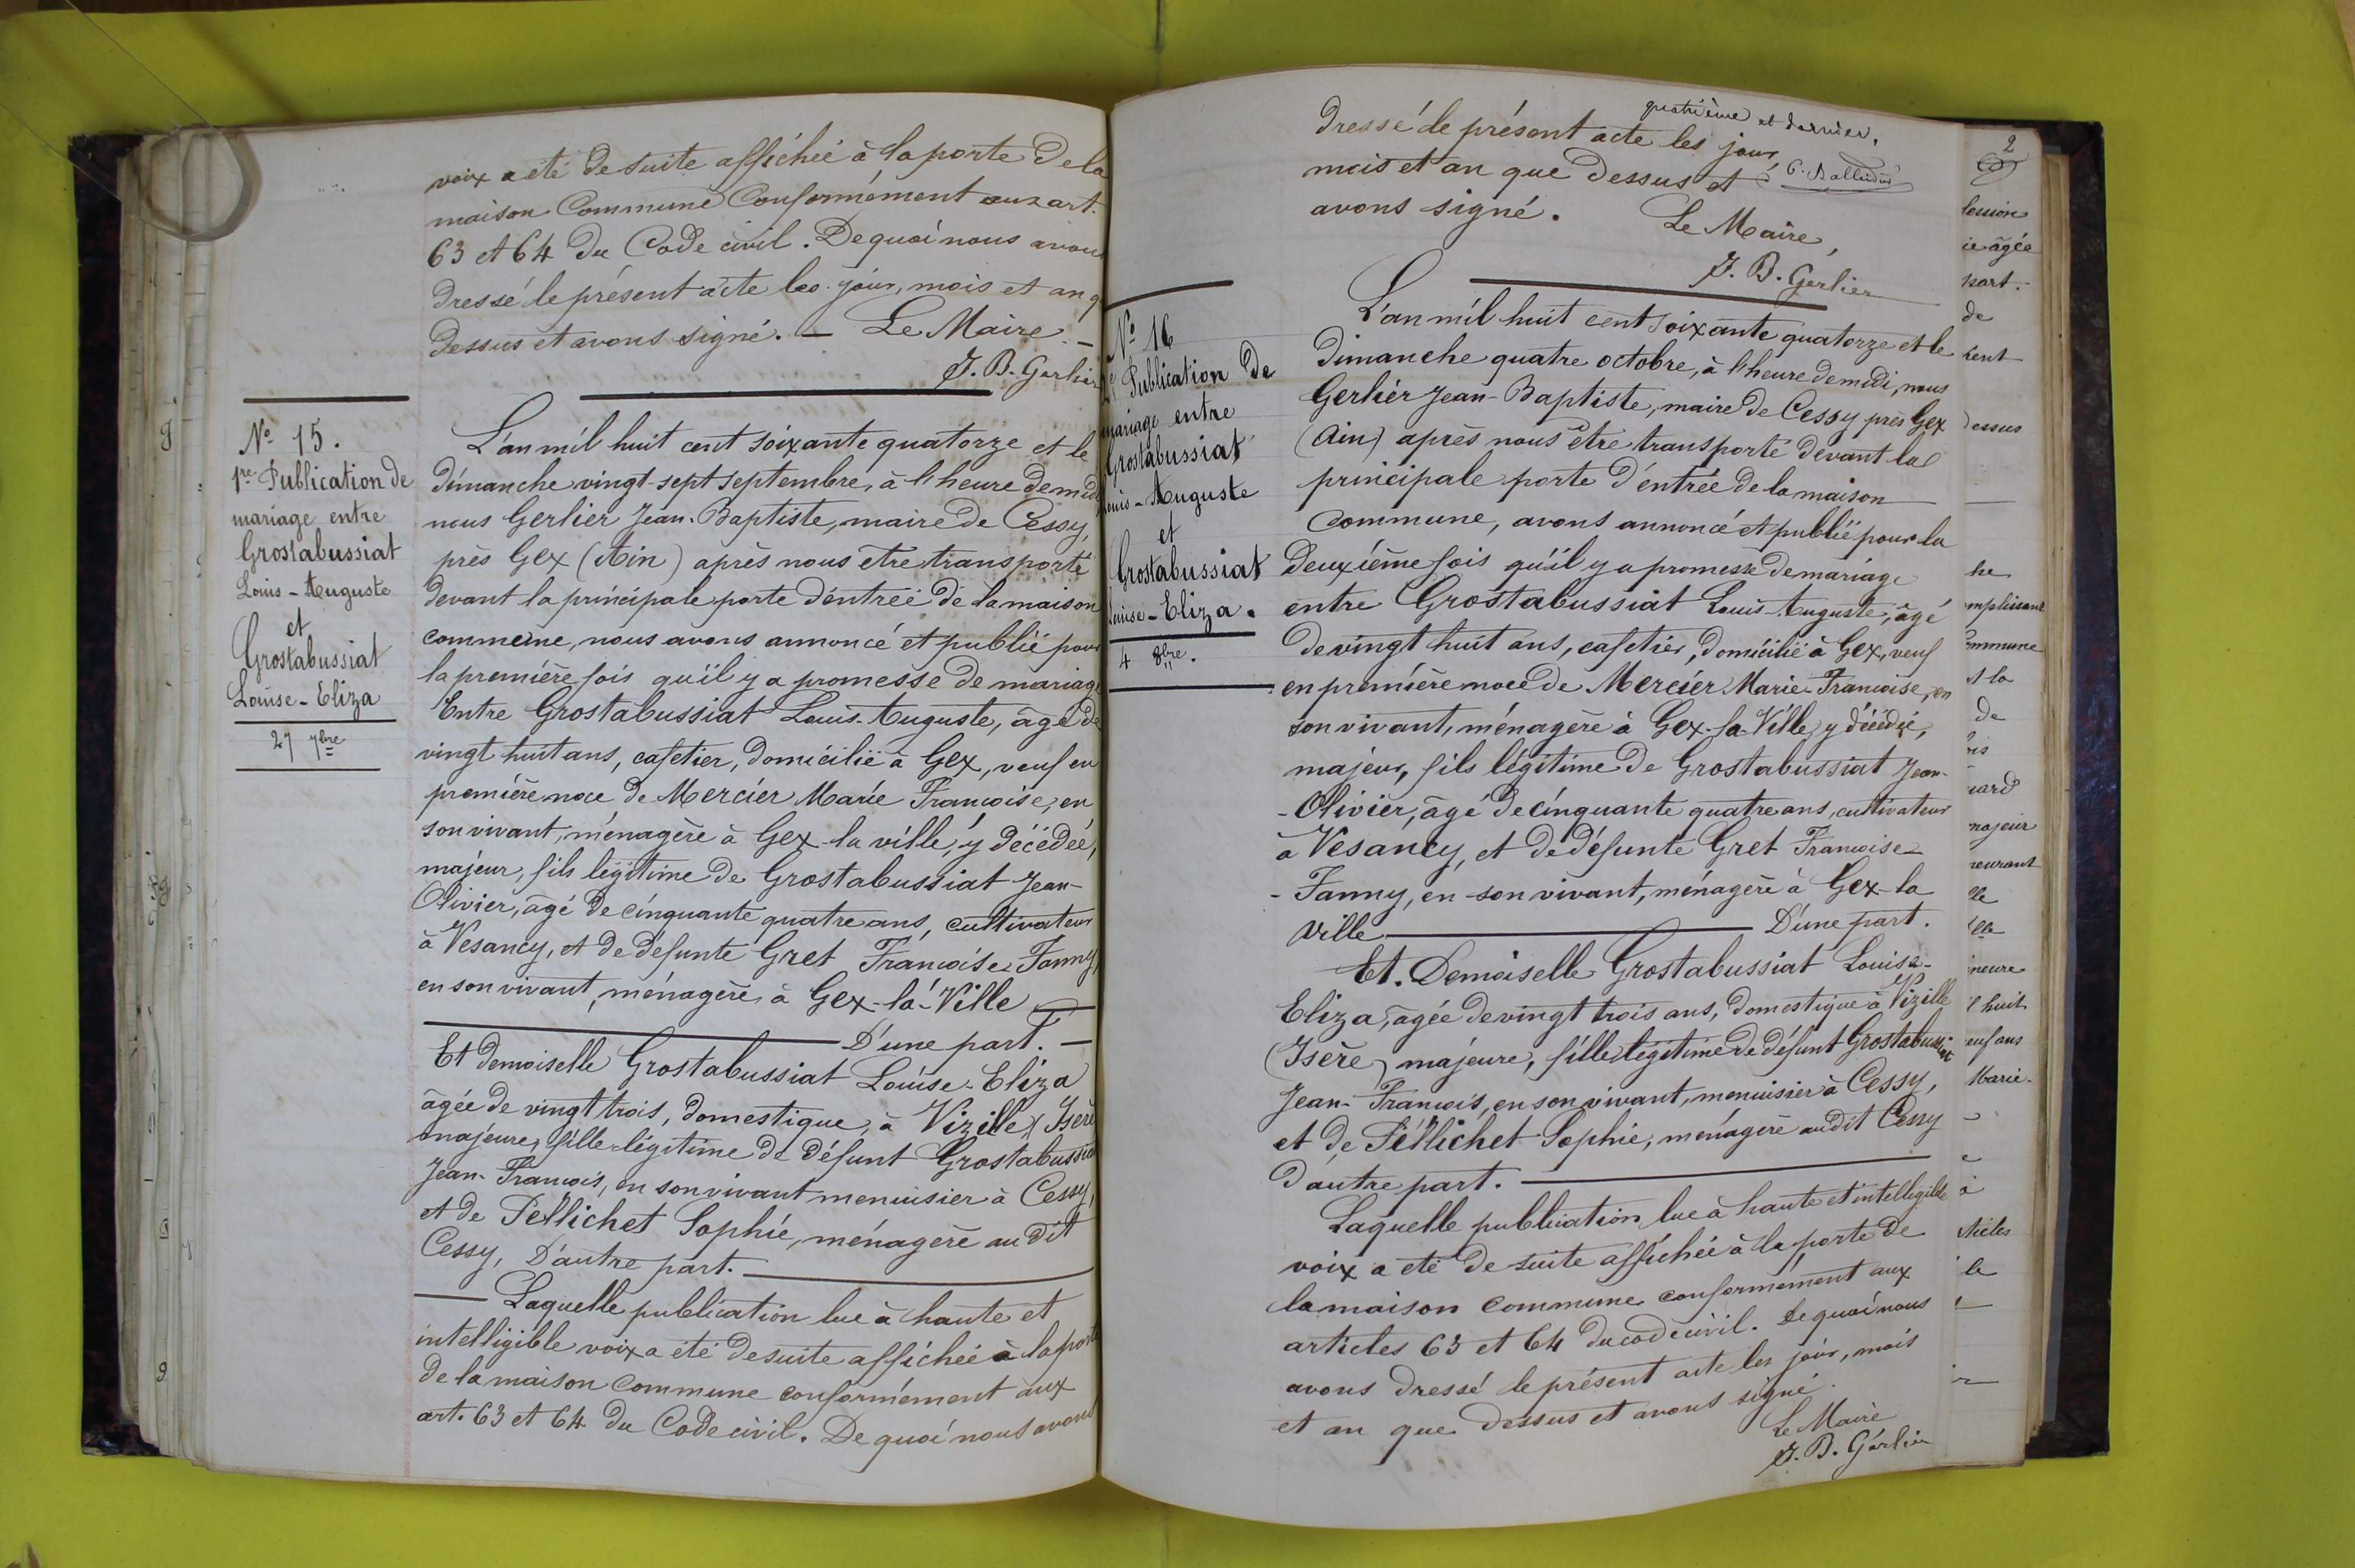 voix a été de suite affichée à la porte de la
maison Commune Conformément aux art.
63 et 64 du Code civil. De quoi nous avons
dressé le présent acte les jour, mois et an q
dessus et avons signé. — Le Maire. —
J. B. Gerlier
Nº 15.
1re Publication de
mariage entre
Grostabussiat
Louis-Auguste
et
Grostabussiat
Louise-Eliza
27 7bre
L'an mil huit cent soixante quatorze et le
dimanche vingt-sept septembre, à l'heure de midi
nous Gerlier Jean-Baptiste, maire de Cessy,
près Gex (Ain) après nous être transporté
devant la principale porte d'entrée de la maison
commune, nous avons annoncé et publié pour
la première fois qu'il y a promesse de mariage
Entre Grostabussiat Louis-Auguste, âgé de
vingt huit ans, cafetier, domicilié à Gex, veuf en
première noce de Mercier Marie Françoise, en
son vivant, ménagère à Gex-la ville, y décédée,
majeur, fils légitime de Grostabussiat Jean-
Olivier, âgé de cinquante quatre ans, cultivateur
à Vesancy, et de défunte Gret Françoise Fanny,
en son vivant, ménagère à Gex-la-Ville
D'une part. —
Et demoiselle Grostabussiat Louise-Eliza
âgée de vingt trois, domestique à Vizille (Isère
majeure, fille légitime de défunt Grostabussiat
Jean-François, en son vivant menuisier à Cessy,
et de Pellichet Sophie, ménagère au dit
Cessy, D'autre part.
Laquelle publication lue à haute et
intelligible voix a été de suite affichée à la porte
de la maison Commune conformément aux
art. 63 et 64 du Code civil. De quoi nous avons
quatrième et dernier.
dressé le présent acte les jour,
mois et an que dessus et
avons signé.
Le Maire,
J. B. Gerlier
Nº 16
2e Publication de
mariage entre
Grostabussiat
Louis-Auguste
et
Grostabussiat
Louise-Eliza.
4 8bre.
L'an mil huit cent soixante quatorze et le
dimanche quatre octobre, à l'heure de midi, nous
Gerlier Jean-Baptiste, maire de Cessy près Gex
(Ain) après nous être transporté devant la
principale porte d'entrée de la maison
Commune, avons annoncé et publié pour la
deuxième fois qu'il y a promesse de mariage
entre Grostabussiat Louis-Auguste, âgé
de vingt huit ans, cafetier, domicilié à Gex, veuf
en première noce de Mercier Marie-Françoise, en
son vivant, ménagère à Gex-la-Ville, y décédée,
majeur, fils légitime de Grostabussiat Jean-
-Olivier, âgé de cinquante quatre ans, cultivateur
à Vesancy, et de défunte Gret Françoise
-Fanny, en son vivant, ménagère à Gex-la
Ville D'une part.
Et. Demoiselle Grostabussiat Louise-
Eliza, âgée de vingt trois ans, domestique à Vizille
(Isère) majeure, fille légitime de défunt Grostabussiat
Jean-François, en son vivant, menuisier à Cessy,
et de Pellichet Sophie, ménagère au dit Cessy
D'autre part.
Laquelle publication lue à haute et intelligible
voix a été de suite affichée à la porte de
la maison commune conformément aux
articles 63 et 64 du code civil. De quoi nous
avons dressé le présent acte les jour, mois
et an que dessus et avons signé.
Le Maire
J. B. Gerlier
2
ie âgée
part.
de
dessus
mplissant
ommune
et la
de
majeur
l huit
euf ans
Marie-
à
le